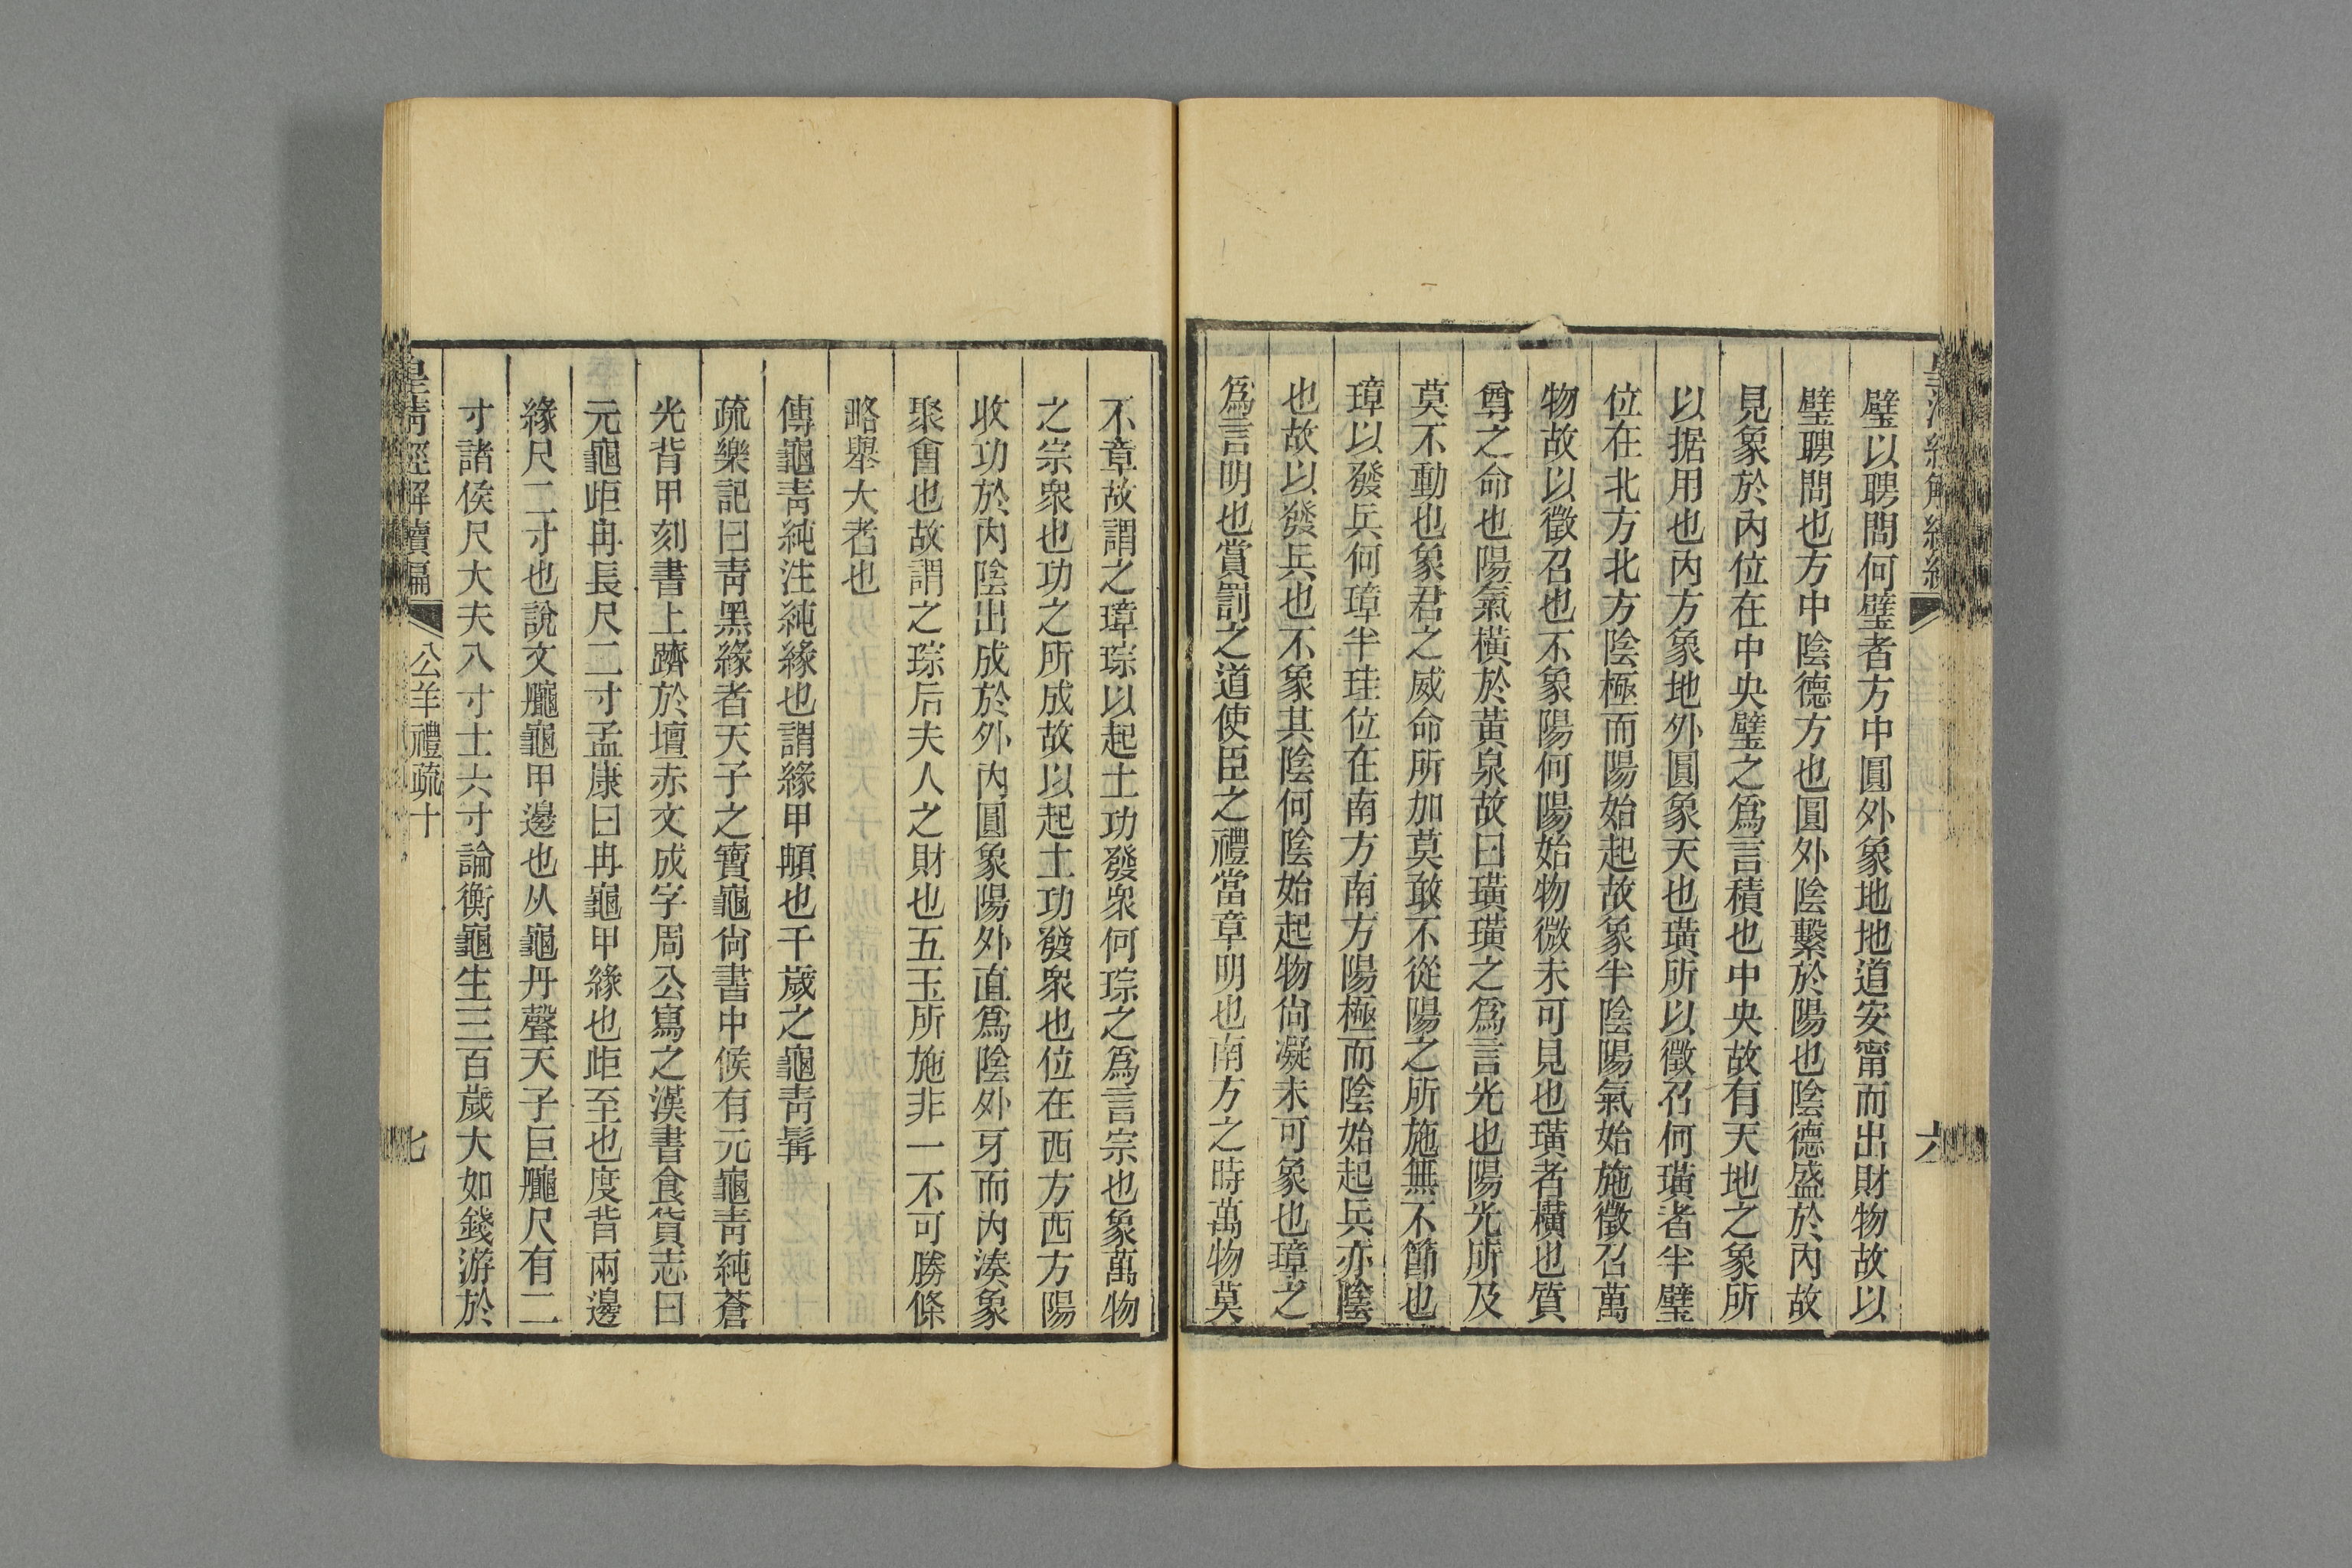 璧以聘問何璧者方中圓外象地地道安甯而出財物故以
璧聘問也方中陰德方也圓外陰繫於陽也陰德盛於內故
見象於內位在中央璧之爲言積也中央故有天地之象所
以据用也內方象地外圓象天也璜所以徵召何璜者半璧
位在北方北方陰極而陽始起故象半陰陽氣始施徵召萬
物故以徵召也不象陽何陽始物微未可見也璜者橫也質
尊之命也陽氣橫於黃泉故曰璜璜之爲言光也陽光所及
莫不動也象君之威命所加莫敢不從陽之所施無不節也
璋以發兵何璋半珪位在南方南方陽極而陰始起兵亦陰
也故以發兵也不象其陰何陰始起物尙凝未可象也璋之
爲言明也賞罰之道使臣之禮當章明也南方之時萬物莫
六
不章故謂之璋琮以起土功發衆何琮之爲言宗也象萬物
之宗衆也功之所成故以起土功發衆也位在西方西方陽
收功於內陰出成於外內圓象陽外直爲陰外牙而內湊象
聚會也故謂之琮后夫人之財也五玉所施非一不可勝條
略舉大者也
傳龜靑純注純緣也謂緣甲䪼也千歲之龜靑髯
疏樂記曰靑黑緣者天子之寶龜尙書中候有元龜靑純蒼
光背甲刻書上躋於壇赤文成字周公寫之漢書食貨志曰
元龜岠冉長尺二寸孟康曰冉龜甲緣也岠至也度背兩邊
緣尺二寸也說文䶲龜甲邊也从龜丹聲天子巨䶲尺有二
寸諸侯尺大夫八寸士六寸論衡龜生三百歲大如錢游於
皇淸經解續編 公羊禮疏十 七